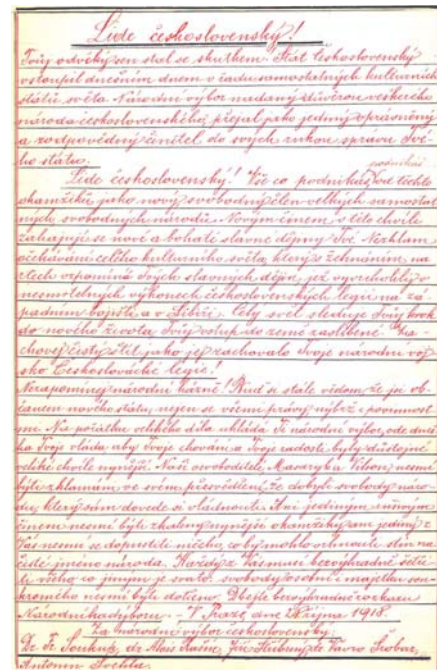 Lide československý!
Tvůj odvěký sen stal se skutkem. Stát československý
vstoupil dnešním dnem v řadu samostatných kulturních
států světa. Národní výbor nadaný důvěrou veškerého
národa československého přejal jako jediný oprávněný
a zodpovědný činitel do svých rukou správu Tvé-
ho státu.
podnikáš
Lide československý! Vše co podnikáš, od těchto
okamžiků jako nový svobodný člen velkých samostat-
ných svobodných národů. Novým činem v této chvíli
zahajují se nové a bohatě slavné dějiny Tvé. Nezklam
očekávání celého kulturního světa, který s žehnáním na
rtech vzpomíná Tvých slavných dějin, jež vyvrcholily v
nesmrtelných výkonech československých legií na zá-
padním bojišti a v Sibiři. Celý svět sleduje Tvůj krok
do nového života, Tvůj vstup do země zaslíbené. Za-
chovej čistý štít jako jej zachovalo Tvoje národní voj-
sko Československé legie!
Nezapomínej národní kázně! Buď si stále vědom, že jsi ob-
čanem nového státu, nejen se všemi právy, nýbrž i povinnost-
mi. Na počátku velikého díla ukládá Ti národní výbor, ode dneš-
ka Tvoje vláda, aby Tvoje chování a Tvoje radost byly důstojné
veliké chvíle nynější. Naši osvoboditelé, Masaryk a Vilson, nesmí
býti zklamáni ve svém přesvědčení, že dobyli svobody náro-
du, který sám dovede si vládnouti. Ani jediným rušivým
činem nesmí býti zkaleny nynější okamžiky, ani jediný z
Vás nesmí se dopustiti ničeho, co by mohlo vrhnouti stín na
čisté jméno národa. Každý z Vás musí bezvýhradně šetři-
ti všeho, co jiným je svato. Svobody osobní i majetku sou-
kromého nesmí býti dotčeno. Dbejte bezvýhradně rozkazu
Národního výboru. - V Praze, dne 28. října 1918.
Za národní výbor československý:
Dr. Fr. Soukup, dr. Alois Rašín, Jiří Stříbrný, dr. Vavro Šrobár,
Antonín Švehla.